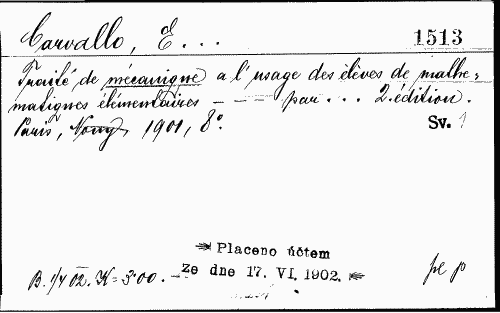 Carvallo, E...
1513
Traité de mécanique a l'usage des élèves de mathe=
matiques élémentaires — — — par... 2. édition.
Paris, Nony, 1901, 8°.
Sv. 1
Placeno účtem
Ze dne 17. VI. 1902.
B. 1/4 02. K = 3·00. —